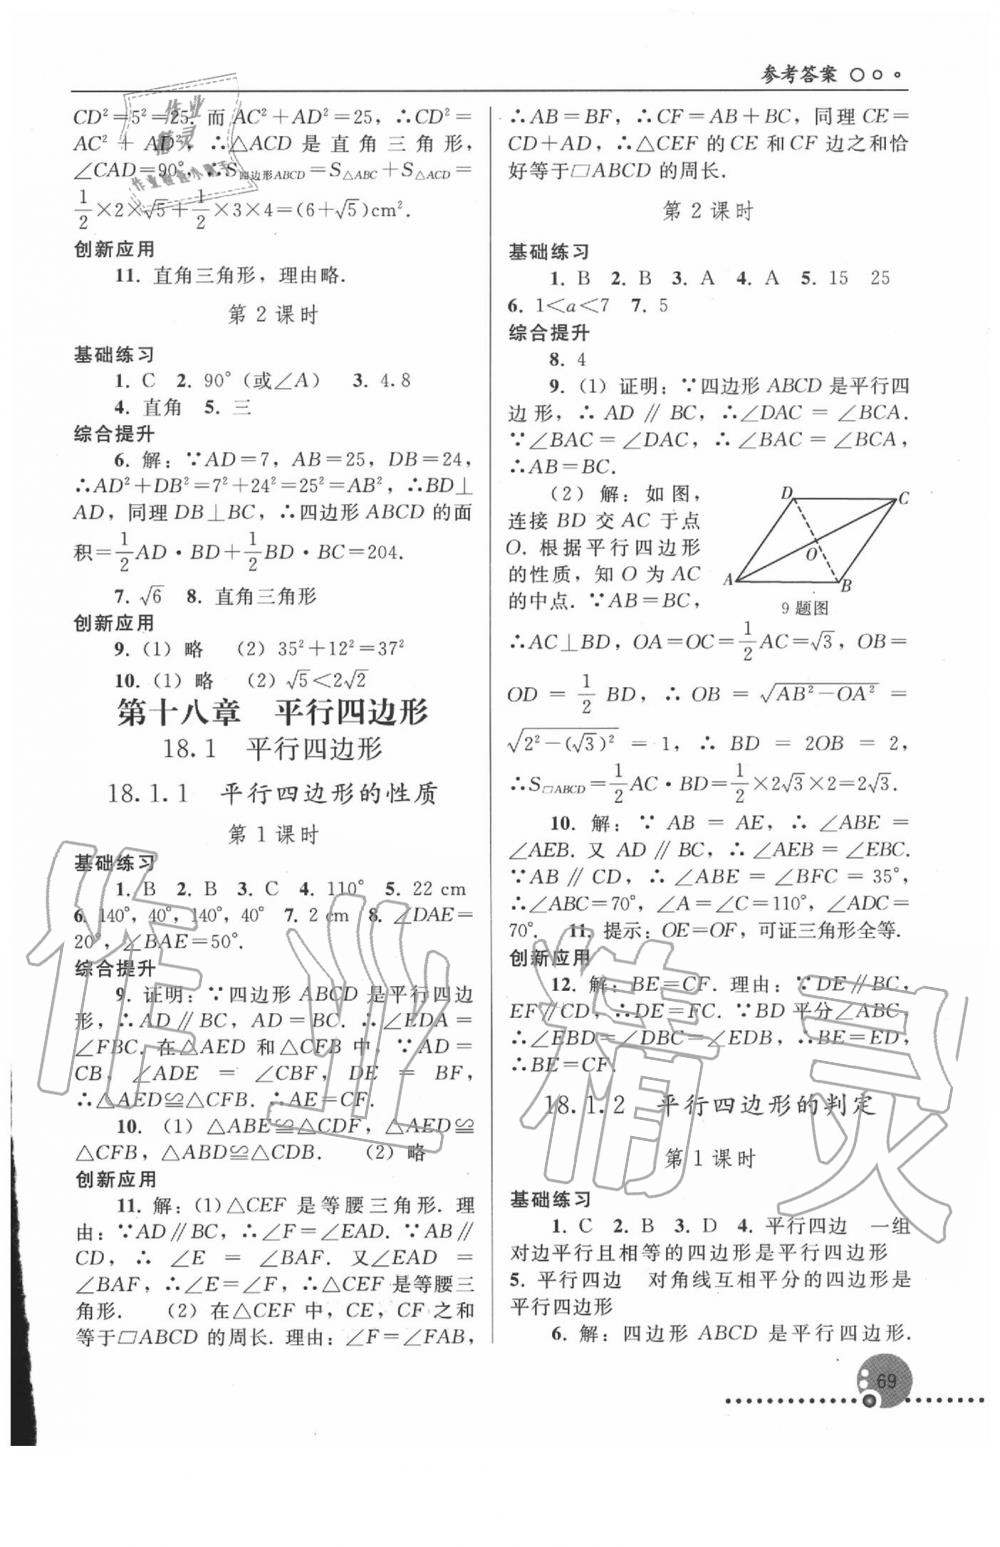 参考答案
CD²=5²=25. 而 AC²+AD²=25，∴CD²=
AC² + AD²，∴△ACD 是直角三角形，
∠CAD=90°，∴S四边形ABCD=S△ABC+S△ACD=
1/2×2×√5+1/2×3×4=(6+√5)cm².
创新应用
11. 直角三角形，理由略.
第 2 课时
基础练习
1. C 2. 90°(或∠A) 3. 4.8
4. 直角 5. 三
综合提升
6. 解：∵AD=7，AB=25，DB=24，
∴AD²+DB²=7²+24²=25²=AB²，∴BD⊥
AD，同理 DB⊥BC，∴四边形 ABCD 的面
积=1/2AD·BD+1/2BD·BC=204.
7. √6 8. 直角三角形
创新应用
9. (1) 略 (2) 35²+12²=37²
10. (1) 略 (2) √5<2√2
第十八章 平行四边形
18.1 平行四边形
18.1.1 平行四边形的性质
第 1 课时
基础练习
1. B 2. B 3. C 4. 110° 5. 22 cm
6. 140°，40°，140°，40° 7. 2 cm 8. ∠DAE=
20°，∠BAE=50°.
综合提升
9. 证明：∵四边形 ABCD 是平行四边
形，∴AD∥BC，AD=BC. ∴∠EDA=
∠FBC. 在△AED 和△CFB 中，∵AD=
CB，∠ADE = ∠CBF，DE = BF，
∴△AED≌△CFB. ∴AE=CF.
10. (1) △ABE≌△CDF，△AED≌
△CFB，△ABD≌△CDB. (2) 略
创新应用
11. 解：(1)△CEF 是等腰三角形. 理
由：∵AD∥BC，∴∠F=∠EAD. ∵AB∥
CD，∴∠E = ∠BAF. 又∠EAD =
∠BAF，∴∠E=∠F，∴△CEF 是等腰三
角形. (2) 在△CEF 中，CE，CF 之和
等于▱ABCD 的周长. 理由：∠F=∠FAB，
∴AB=BF，∴CF=AB+BC，同理 CE=
CD+AD，∴△CEF 的 CE 和 CF 边之和恰
好等于▱ABCD 的周长.
第 2 课时
基础练习
1. B 2. B 3. A 4. A 5. 15 25
6. 1<a<7 7. 5
综合提升
8. 4
9. (1) 证明：∵四边形 ABCD 是平行四
边形，∴ AD∥BC，∴∠DAC = ∠BCA.
∵∠BAC = ∠DAC，∴∠BAC = ∠BCA，
∴AB=BC.
(2) 解：如图，
连接 BD 交 AC 于点
O. 根据平行四边形
的性质，知 O 为 AC
的中点. ∵AB=BC，
D
C
O
A
B
9 题图
∴AC⊥BD，OA=OC=1/2AC=√3，OB=
OD = 1/2 BD，∴ OB = √(AB²−OA²) =
√(2²−(√3)²) = 1，∴ BD = 2OB = 2，
∴S▱ABCD=1/2AC·BD=1/2×2√3×2=2√3.
10. 解：∵ AB = AE，∴ ∠ABE =
∠AEB. 又 AD∥BC，∴∠AEB = ∠EBC.
∵AB∥CD，∴ ∠ABE = ∠BFC = 35°，
∴∠ABC=70°，∠A=∠C=110°，∠ADC=
70°. 11. 提示：OE=OF，可证三角形全等.
创新应用
12. 解：BE=CF. 理由：∵DE∥BC，
EF∥CD，∴DE=FC. ∵BD 平分∠ABC，
∴∠EBD=∠DBC=∠EDB，∴BE=ED，
∴BE=CF.
18.1.2 平行四边形的判定
第 1 课时
基础练习
1. C 2. B 3. D 4. 平行四边 一组
对边平行且相等的四边形是平行四边形
5. 平行四边 对角线互相平分的四边形是
平行四边形
6. 解：四边形 ABCD 是平行四边形.
69
作业精灵